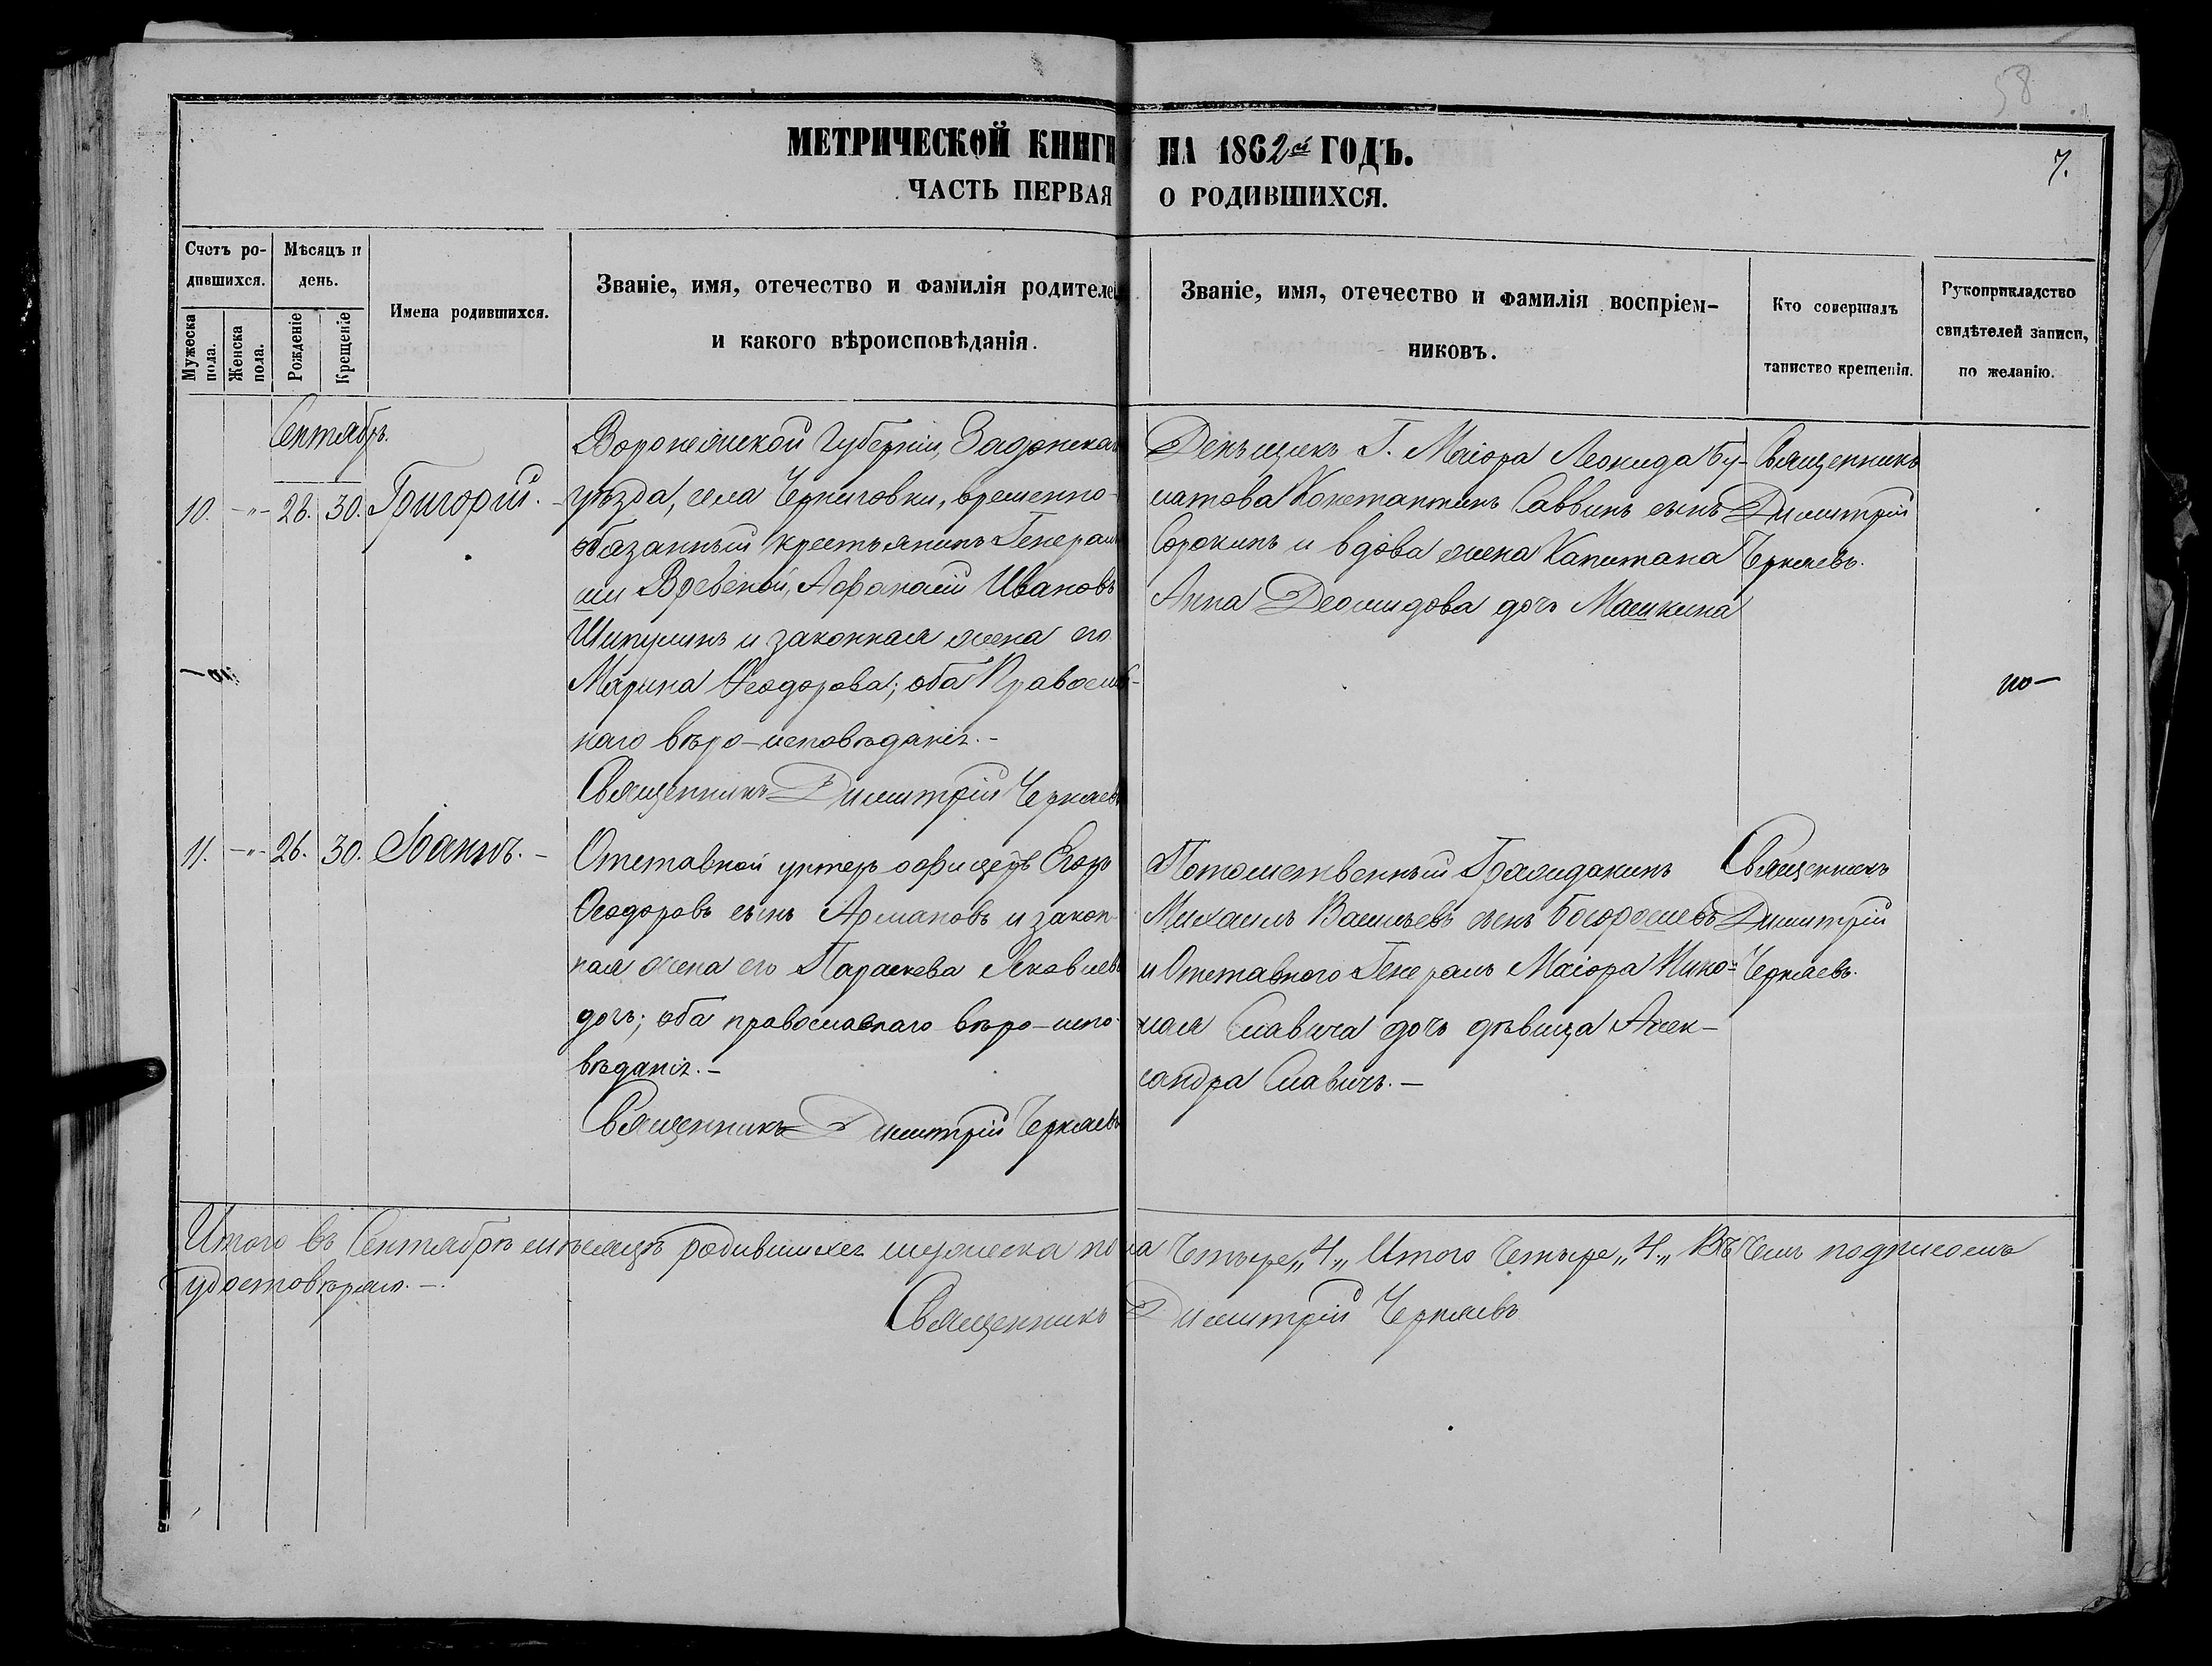 58
МЕТРИЧЕСКОЙ КНИГИ НА 1862й ГОДЪ.
7.
ЧАСТЬ ПЕРВАЯ О РОДИВШИХСЯ.
Счетъ ро-
дившихся.
Мужеска
пола.
Женска
пола.
Мѣсяцъ и
день.
Рожденіе
Крещеніе
Имена родившихся.
Званіе, имя, отечество и фамилія родителей
и какого вѣроисповѣданія.
Званіе, имя, отечество и фамилія воспріем-
никовъ.
Кто совершалъ
таинство крещенія.
Рукоприкладство
свидѣтелей записи,
по желанію.
Сентябрь.
10. -"- 26. 30. Григорій.
Воронежской Губерніи, Задонскаго
уѣзда, села Черниговки, временно-
обязанный крестьянинъ Генераль
ши Вревской, Афанасій Ивановъ
Шипулинъ и законная жена его
Марина Ѳеодорова; оба Православ-
наго вѣро-исповѣданія.-
Священникъ Димитрій Черняевъ
Деньщикъ Г. Маіора Леонида Бу-
латова Константинъ Саввинъ сынъ
Сорокинъ и вдова жена Капитана
Анна Деомидова дочь Машкина
Священникъ
Димитрій
Черняевъ.
по-
11. -"- 26. 30. Іоаннъ.-
Отставной унтеръ офицеръ Егоръ
Ѳеодоровъ сынъ Армановъ и закон-
ная жена его Параскева Яковлева
дочь; оба православнаго вѣро-испо-
вѣданія.-
Священникъ Димитрій Черняевъ
Потомственный Гражданинъ
Михаилъ Васильевъ сынъ
и Отставного Генералъ Маіора Нико-
лая Славича дочь дѣвица Алек-
сандра Славичъ.-
Священникъ
Димитрій
Черняевъ.
Итого въ Сентябрѣ мѣсяцѣ родившихся мужеска пола Четыре „4„ Итого Четыре „4„ Въ чемъ подписомъ
удостовѣряю.-
Священникъ Димитрій Черняевъ